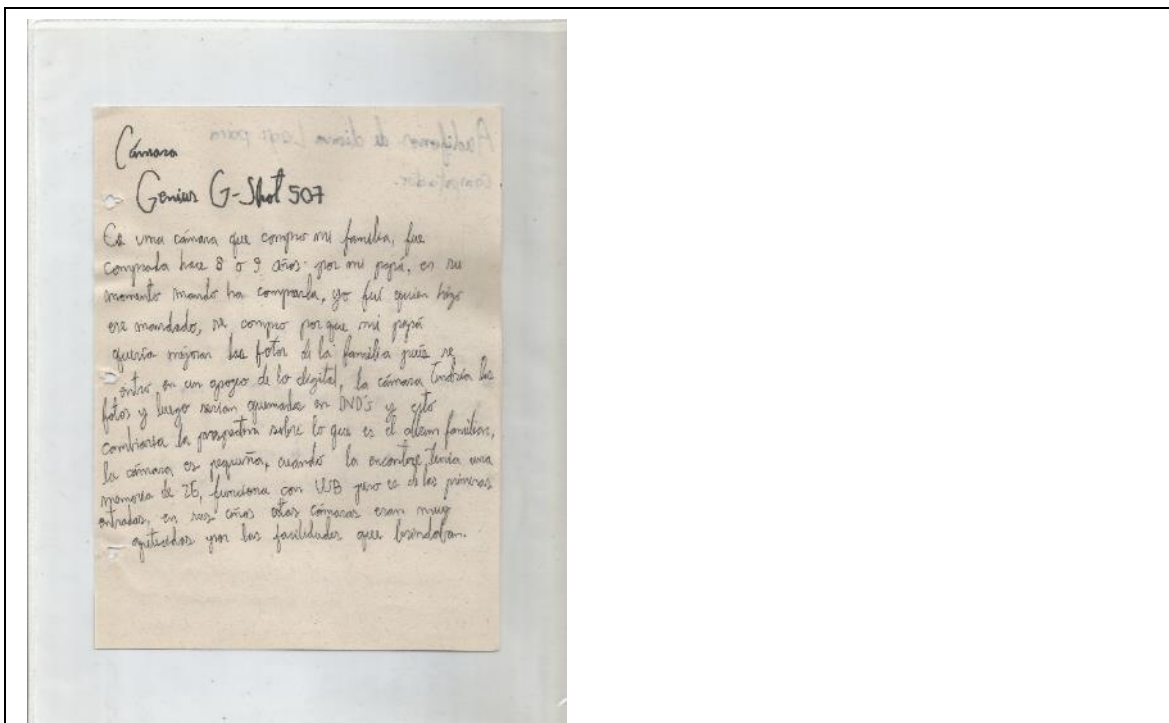 Cámara
Genius G-Shot 507
Es una cámara que compro mi familia, fue
comprada hace 8 o 9 años por mi papá, en su
momento mando ha comprarla, yo fui quien hizo
ese mandado, se compro porque mi papá
quería mejorar las fotos de la familia pues se
entro en un apogeo de lo digital, la cámara tendría las
fotos y luego serian quemadas en DVD's y esto
cambiaria la perspectiva sobre lo que es el album familiar,
la cámara es pequeña, cuando la encontre, tenia una
memoria de 2G, funciona con USB pero es de las primeras
entradas, en sus años estas cámaras eran muy
apetecidas por las facilidades que brindaban.
Audifonos de diadema Logi para
computador.